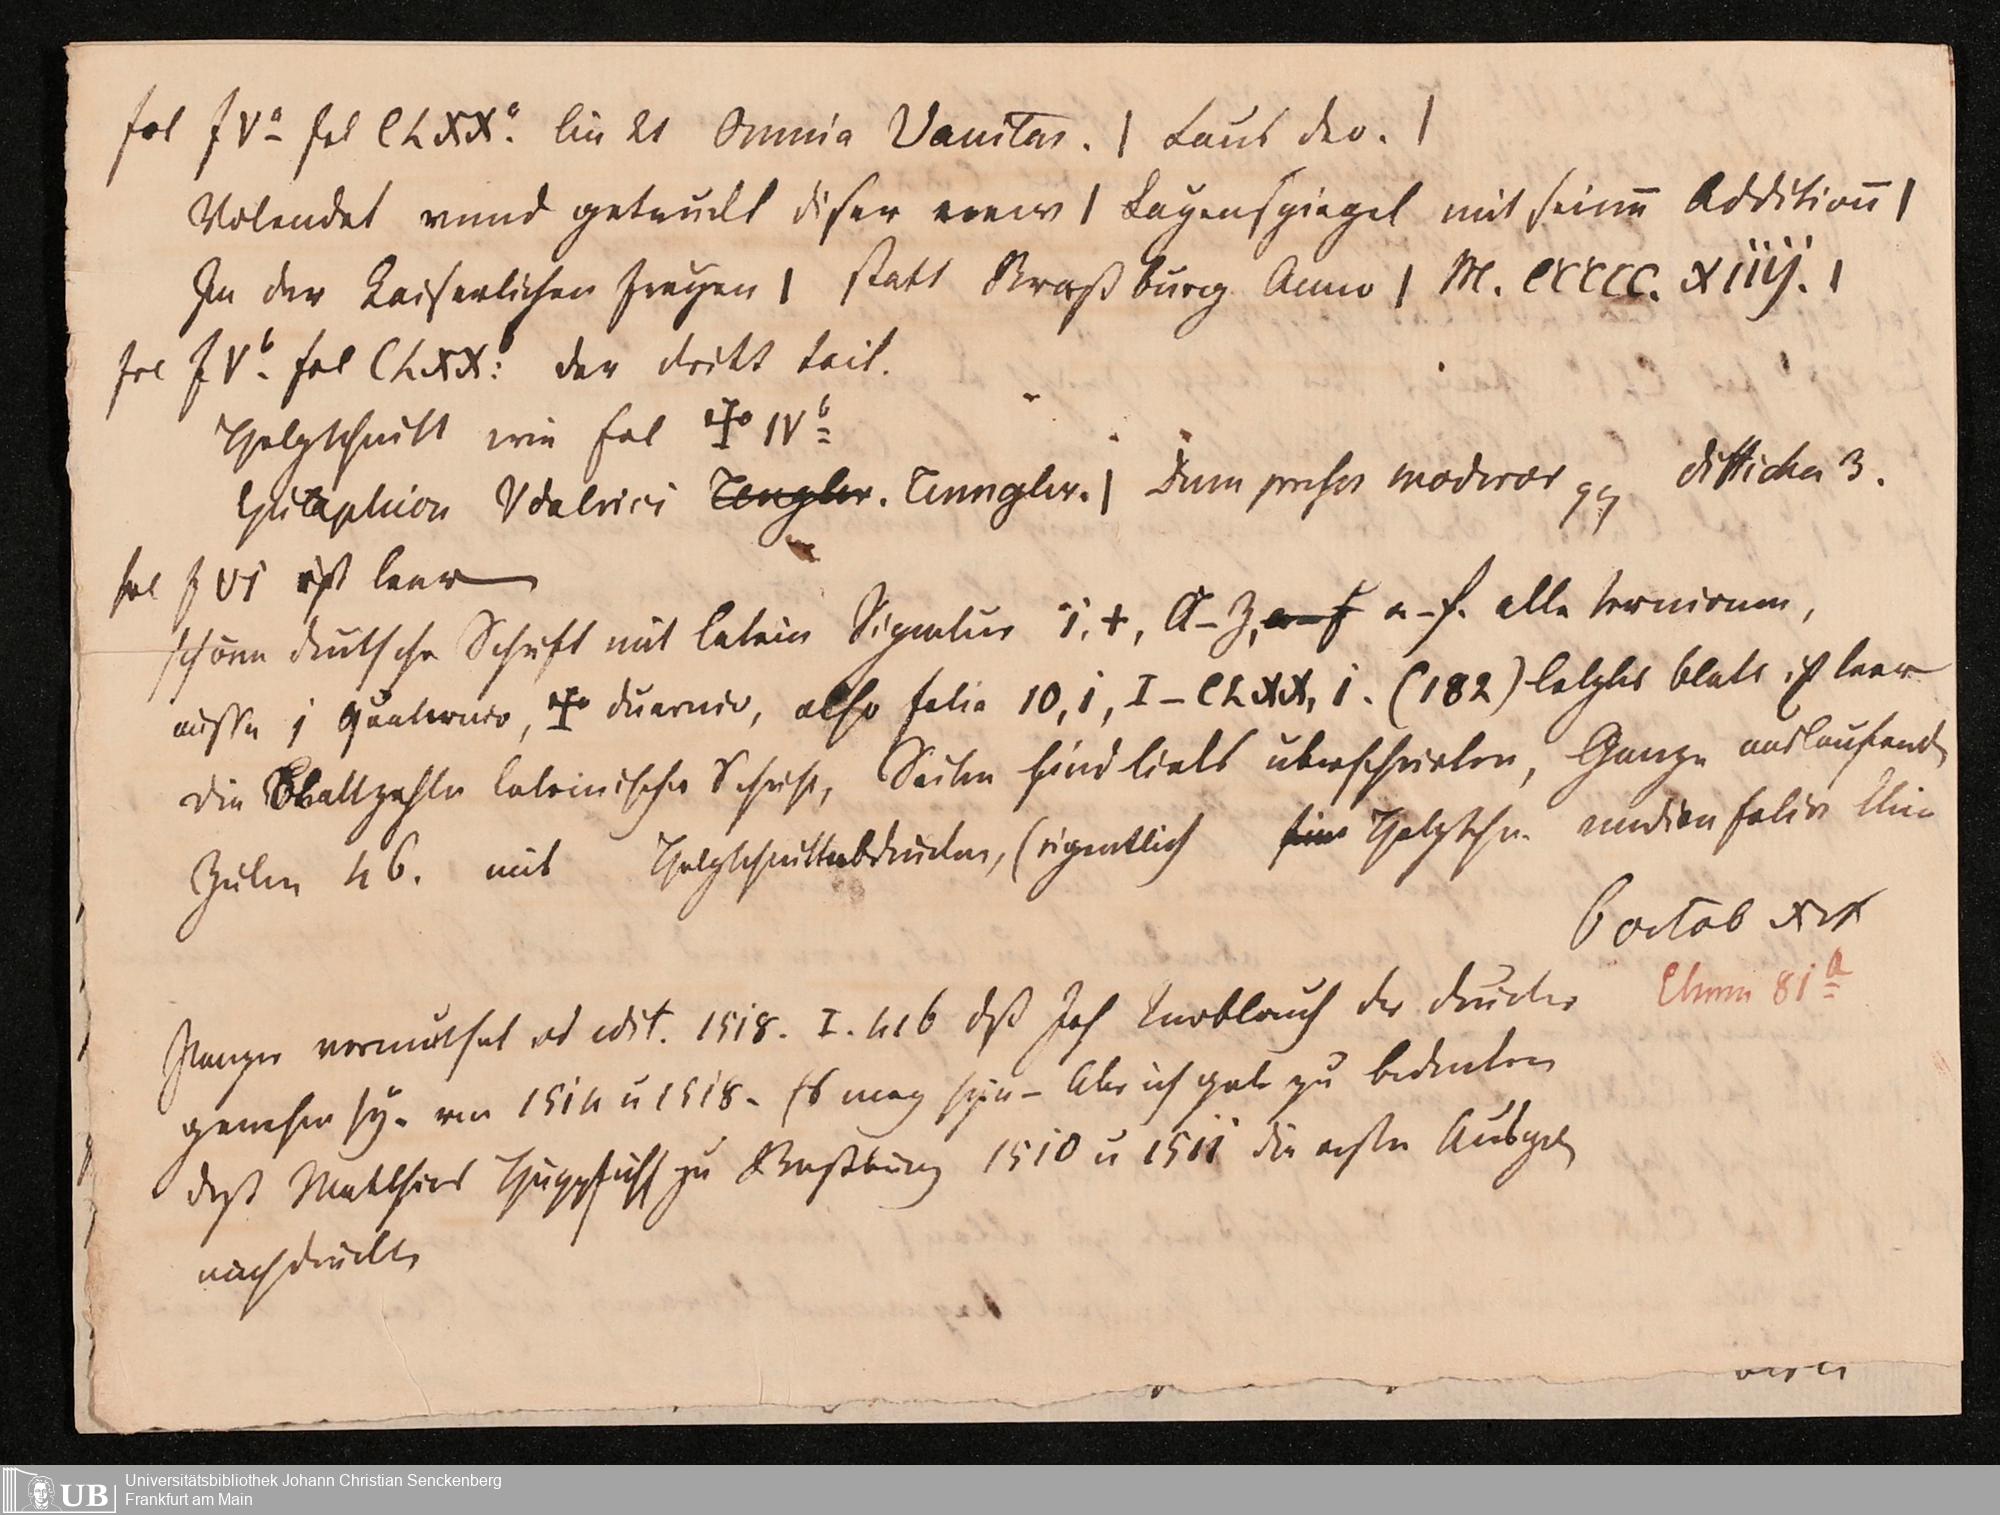 fol f Vᵃ fol CLXXᵃ. lin 21 Omnia Vanitas. | Laus deo. |
Volendet vnnd getruckt diser new | Layenspiegel mit seinn̄ Additionn̄ |
In der Kaiserlichen freyen | statt Straßburg Anno | M. CCCCC. XIIIJ. |
fol f Vᵇ. fol CLXX: der dritt teil.
Holzschnitt wie fol ✠ IVᵇ
Epitaphion Vdalrici Tengler. Tenngler. | Dum preses moderor disticha 3.
fol f VI ist leer
schöne deutsche Schrift mit latein Signatur i, +, A–Z, a–f a–f. alle ternionen,
ausser i quaternio, ✠ duernio, also folia 10, i, I–CLXX, i. (182) letztes blatt ist leer
die Blattzahlen lateinische Schrift, Seiten sind links überschrieben, Ganze auslaufende
Zeilen 46. mit Holzschnittabdrucken, (eigentlich Holzschn. median folio
6 octob
81ᵃ
Panzer vermuthet ad edit. 1518. I. 416 daß Joh Knoblauch der drucker
gewesen sey. von 1514 u 1518. Es mag seyn – Aber ich gebe zu bedenken
daß Matthias Hupfuff zu Straßburg 1510 u 1511 die erste Ausgabe
nachdruckte
Universitätsbibliothek Johann Christian Senckenberg
Frankfurt am Main
UB